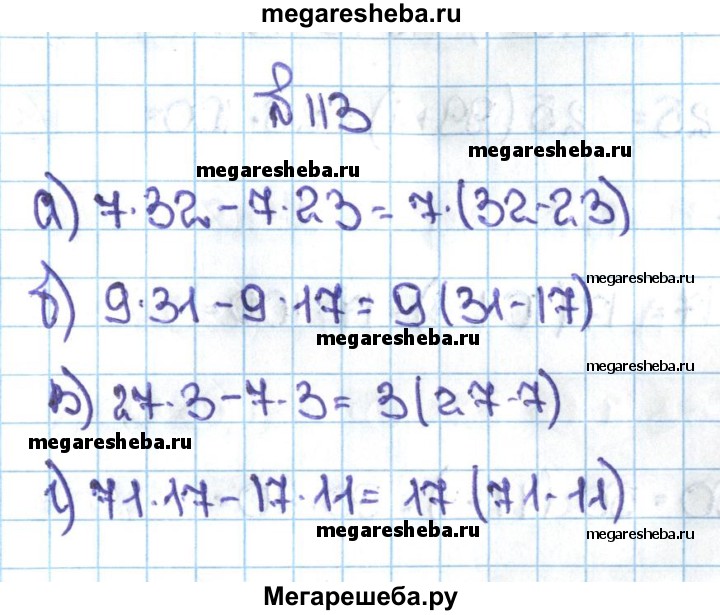 megaresheba.ru
№ 113
megaresheba.ru
megaresheba.ru
а) 7·32-7·23=7·(32-23)
megaresheba.ru
б) 9·31-9·17=9(31-17)
megaresheba.ru
megaresheba.ru
в) 27·3-7·3=3(27-7)
megaresheba.ru
г) 71·17-17·11=17(71-11)
megaresheba.ru
megaresheba.ru
Мегарешеба.ру